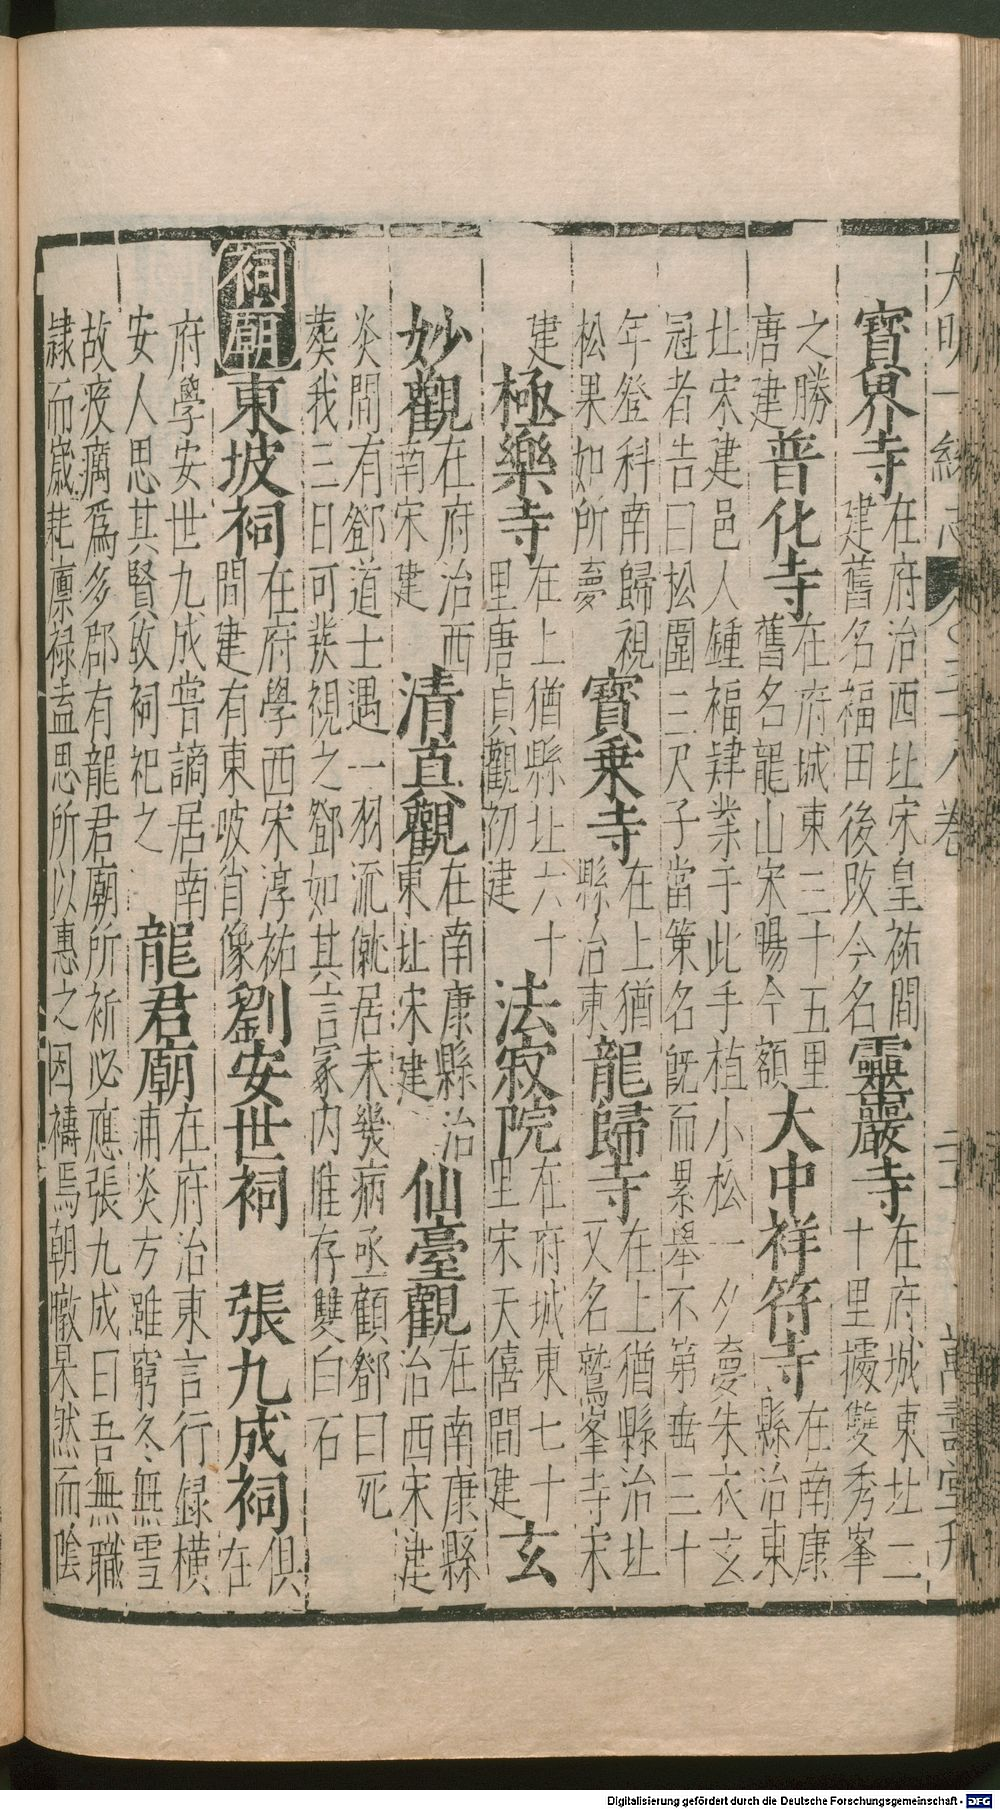 大明一統志 卷五十八卷 萬壽堂刊
寶界寺
在府治西北宋皇祐間
建舊名福田後改今名
靈巖寺
在府城東北二
十里據雙秀峯
之勝
唐建
普化寺
在府城東三十五里
舊名龍山宋暘今額
大中祥符寺
在南康
縣治東
北宋建邑人鍾福肄業于此手植小松一夕夢朱衣玄
冠者告曰松圍三尺子當策名旣而累舉不第垂三十
年登科南歸視
松果如所夢
寶乗寺
在上猶
縣治東
龍歸寺
在上猶縣治北
又名鷲峯寺宋
建
極樂寺
在上猶縣北六十
里唐貞觀初建
法寂院
在府城東七十
里宋天僖間建
玄
妙觀
在府治西
南宋建
清真觀
在南康縣治
東北宋建
仙臺觀
在南康縣
治西宋建
炎間有鄧道士遇一羽流僦居未幾病亟顧鄧曰死
葬我三日可發視之鄧如其言冢内惟存雙白石
祠廟
東坡祠
在府學西宋淳祐
間建有東坡肖像
劉安世祠 張九成祠
俱
在
府學安世九成嘗謫居南
安人思其賢故祠祀之
龍君廟
在府治東言行録橫
浦炎方雖窮冬無雪
故疫癘爲多郡有龍君廟所祈必應張九成曰吾無職
隷而歲耗廪祿盍思所以惠之因禱焉朝暾杲然而陰
Digitalisierung gefördert durch die Deutsche Forschungsgemeinschaft - DFG